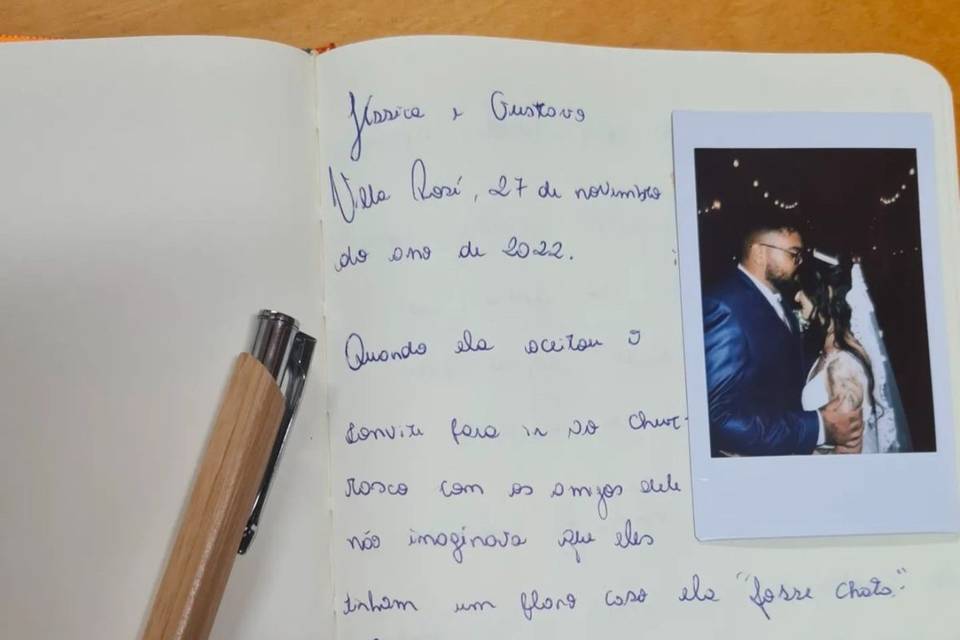 Jéssica e Gustavo
Villa Rosé, 27 de novembro
do ano de 2022.
Quando ela aceitou o
convite para ir ao chur-
rasco com os amigos dele
não imaginava que eles
tinham um plano caso ela "fosse chata".